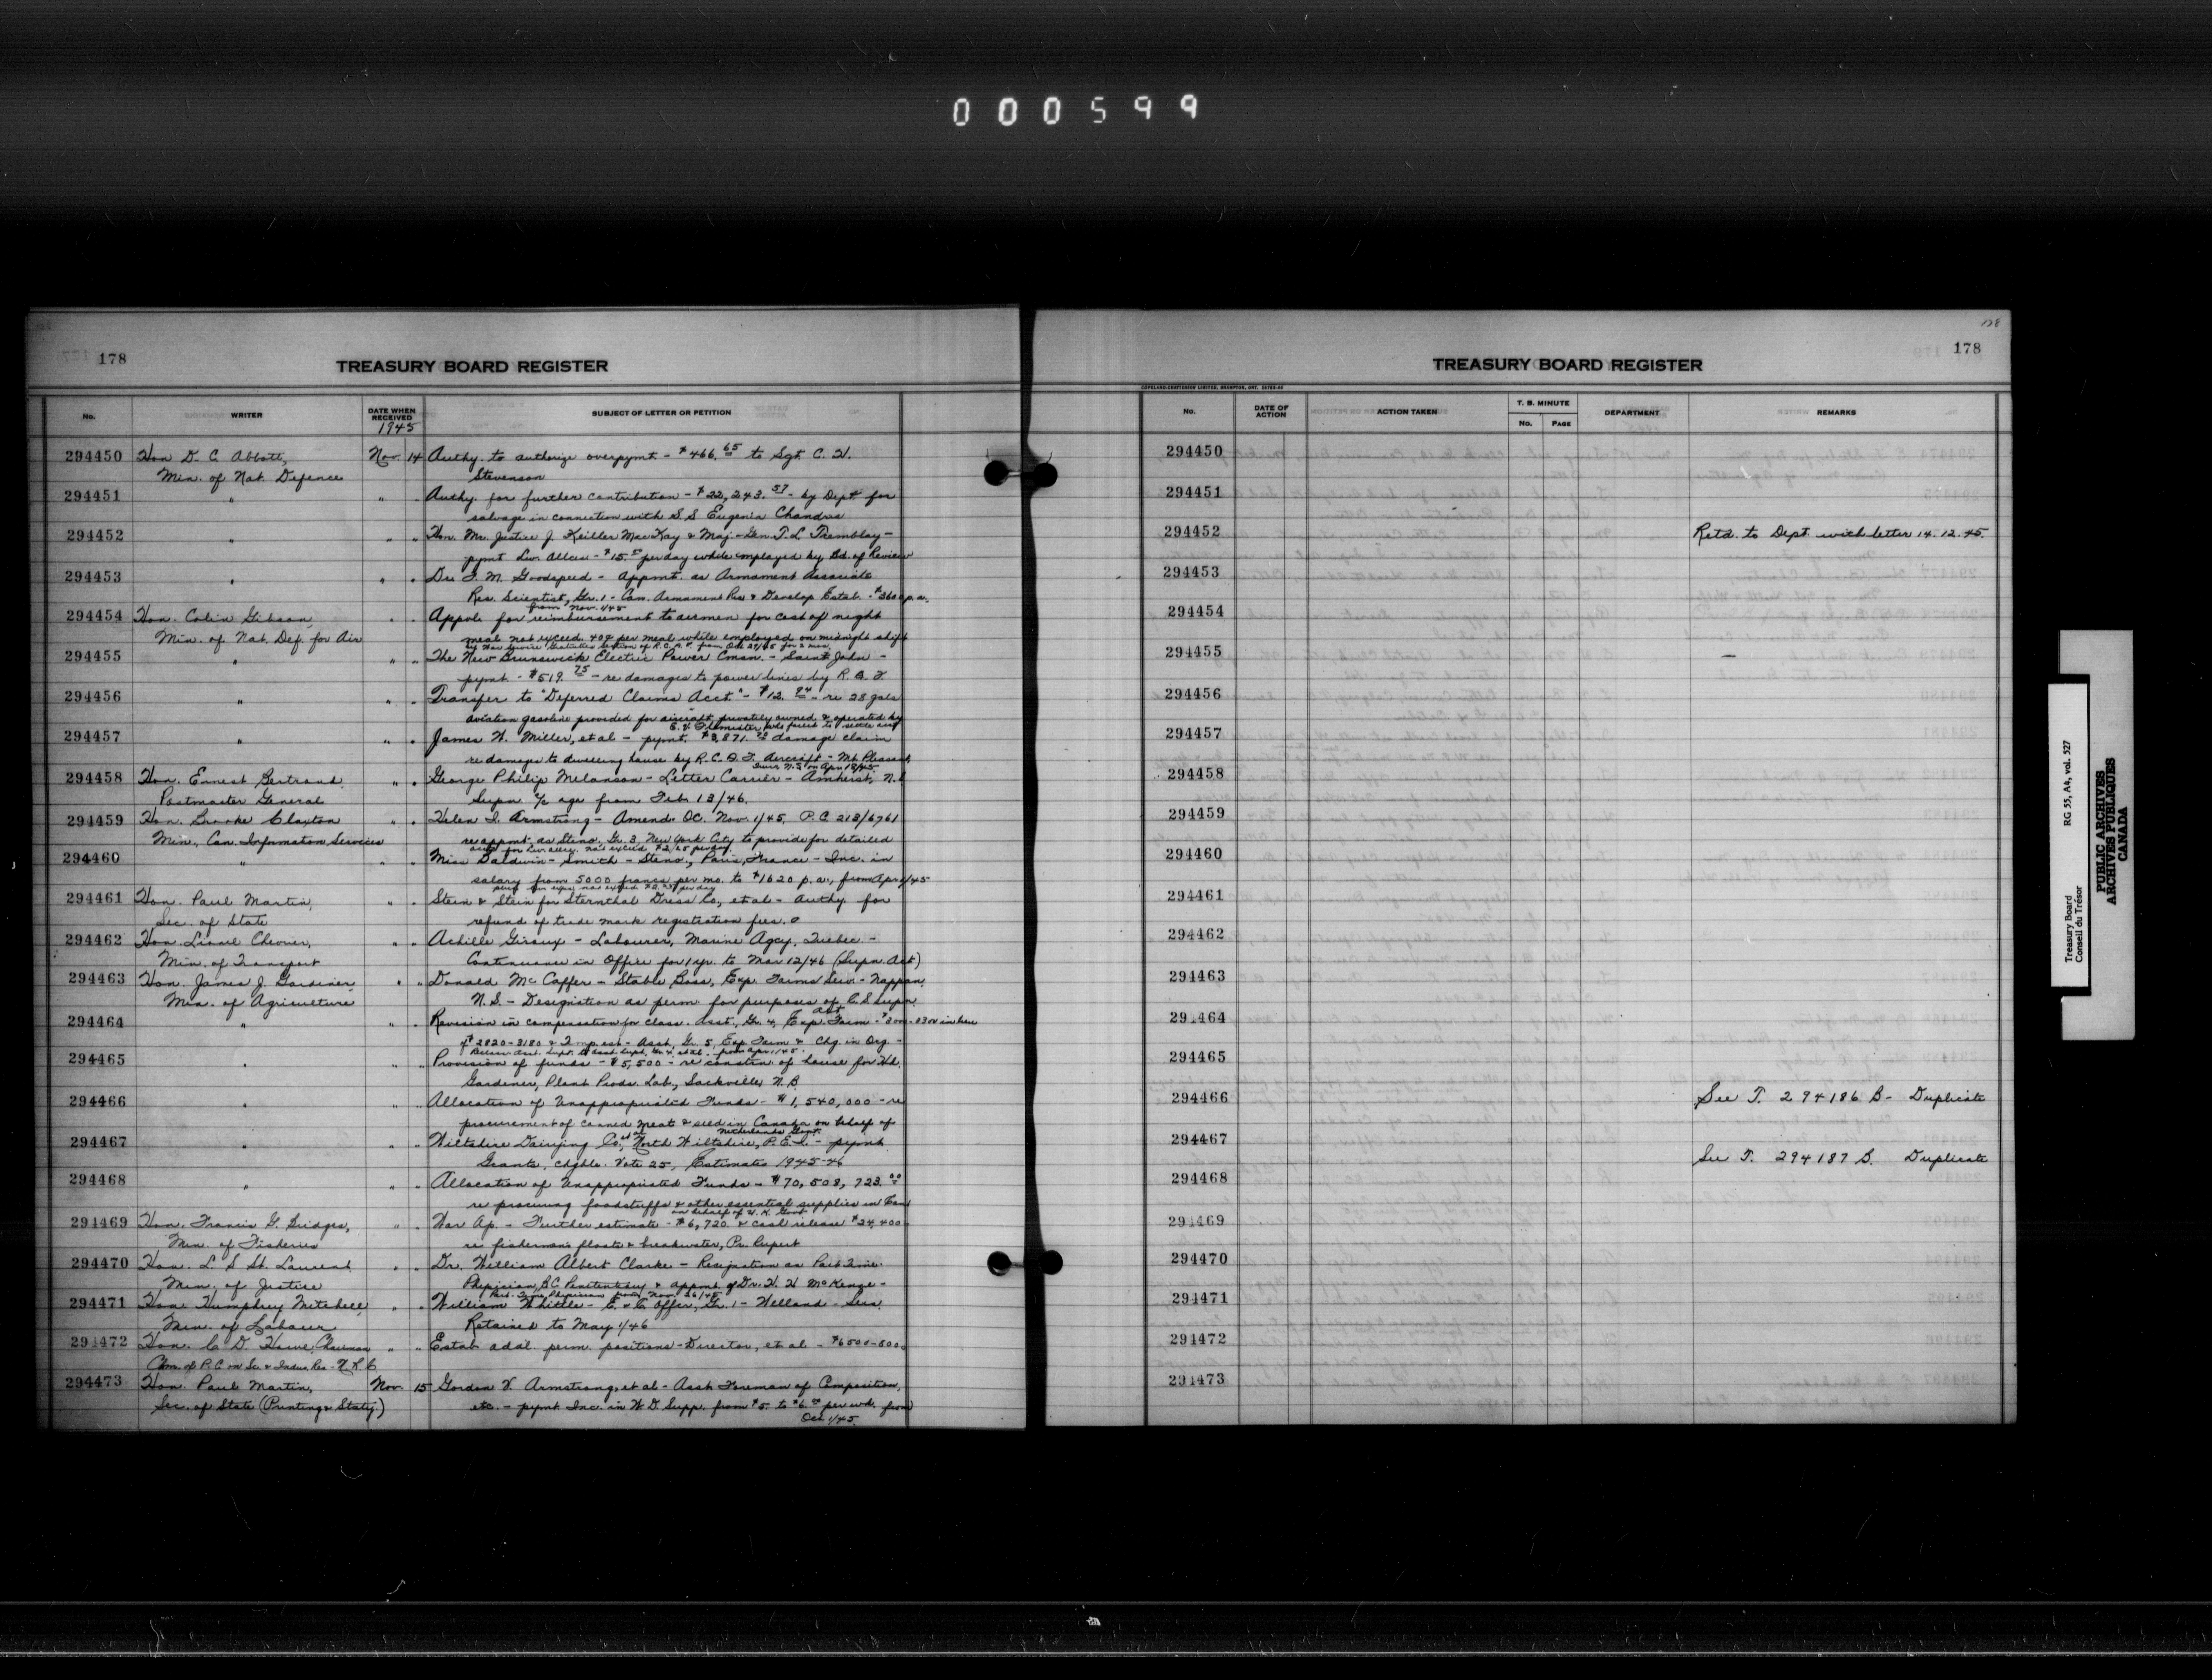 000599
178
TREASURY BOARD REGISTER
No. WRITER DATE WHEN RECEIVED SUBJECT OF LETTER OR PETITION
1945
294450 Hon D. C. Abbott, Nov. 14 Authy. to authorize overpymt - $466.65 to Sgt. C. H.
Min. of Nat. Defence Stevenson
294451 " " " Authy. for further contribution - $22,243.57 - by Dept for
salvage in connection with S.S Eugenia Chandris
294452 " " " Hon. Mr. Justice J. Keiller MacKay & Maj-Gen. T. L. Tremblay -
pymt Liv. Allces - $15. per day while employed by Bd. of Review
294453 " " " Goodspeed - Appmt. as Armament Associate
Res. Scientist, Gr. 1 - Can. Armament Res & Develop Estab. - $3600 p.a.
from Nov. 1/45
294454 Hon. Colin Gibson, " " for reimbursement to airmen for cost of night
Min. of Nat. Def. for Air meal not exceed. 40¢ per meal while employed on midnight shift
294455 " " " The New Brunswick Electric Power Comsn. - Saint John -
pymt - $519.75 - re damages to power lines by R. A. F
294456 " " " Transfer to "Deferred Claims Acct." - $12. - re 28 gals
aviation gasoline provided for aircraft privately owned & operated by
294457 " " " James W. Miller, et al - pymt. damage claim
re damage to dwelling house by R.C.A.F. Aircraft - Mt. Pleasant
294458 Hon. Ernest Bertrand, " " George Philip Melanson - Letter Carrier - Amherst, N.S
Postmaster General Supn. a/c age from Feb 13/46.
294459 Hon. Brooke Claxton " " Helen I. Armstrong - Amend. OC. Nov. 1/45 P.C. 213/6761
Min., Can. Information Services re appmt. as Steno. Gr. 3, New York City to provide for detailed
294460 " " " Miss Baldwin-Smith - Steno., Paris, France - Inc. in
salary from 5000 francs per mo. to $1620 p.a., from Apr 1/45
294461 Hon. Paul Martin, " " Stein & Stein for Sternthal Dress Co., et al - Authy. for
Sec. of State refund of trade mark registration fees.
294462 Hon. Lionel Chevrier, " " Achille Giroux - Labourer, Marine Agcy, Quebec. -
Min. of Transport Continuance in Office for 1 yr. to Mar 12/46 (Supn. Act)
294463 Hon. James J. Gardiner, " " Donald McCaffer - Stable Boss, Exp. Farms Serv - Nappan,
Min. of Agriculture N.S. - Designation as perm. for purposes of C.S. Supn.
Act
294464 " " " Revision in compensation for class. Asst., Gr. 4, Exp. Farm - $3000-3300 in lieu
of $2820-3180 & Asst., Gr. 5, Exp Farm & Chg. in Org. -
294465 " " " Provision of funds - $5,500 - re constrn. of house for Hd.
Gardener, Plant Prods. Lab., Sackville, N.B.
294466 " " " Allocation of Unappropriated Funds - $1,540,000 - re
procurement of canned meat & seed in Canada on behalf of
Netherlands Govt.
294467 " " " Wiltshire Dairying Co., et al North Wiltshire, P.E.I. - pymt
Grants, chgble. Vote 25, Estimates 1945-46
294468 " " " Allocation of Unappropriated Funds - $70,508,723.00
re procuring foodstuffs & other essential supplies in Can
on behalf of U.K. Govt
294469 Hon. Francis G. Bridges, " " War Ap. - Further estimate - $6,720. & cash release $24,400
Min. of Fisheries re fishermen's floats & breakwater, Pr. Rupert
294470 Hon. L. S St. Laurent " " Dr. William Albert Clarke - Resignation as Part Time
Min. of Justice Physician, B.C. Penitentiary & appmt. of Dr. H. H McKenzie -
Part-Time Physician from Nov. 26/45
294471 Hon Humphrey Mitchell, " " William Whittle - E. & C. Offer, Gr. 1 - Welland - Serv.
Min. of Labour Retained to May 1/46
294472 Hon. C D. Howe, Chairman " " Estab addl. perm. positions - Director, et al - $6500-
Com. of P.C on Sc. & Indus. Res - N.R.C
294473 Hon. Paul Martin, Nov. 15 Gordon V. Armstrong, et al - Asst. Foreman of Composition,
Sec. of State (Printing & Staty.) etc. - pymt Inc. in W.D. Supp. from $5. to $6. per wk. from
Oct 1/45.
178
178
TREASURY BOARD REGISTER
COPELAND-CHATTERSON LIMITED, BRAMPTON, ONT.
No. DATE OF ACTION ACTION TAKEN T. B. MINUTE No. PAGE DEPARTMENT REMARKS
294450
294451
294452 Retd. to Dept. with letter 14.12.45.
294453
294454
294455
294456
294457
294458
294459
294460
294461
294462
294463
294464
294465
294466 See T. 294186 B - Duplicate
294467
See T. 294187 B. Duplicate
294468
294469
294470
294471
294472
294473
Treasury Board RG 55, A4, vol. 527
Conseil du Trésor
PUBLIC ARCHIVES
ARCHIVES PUBLIQUES
CANADA